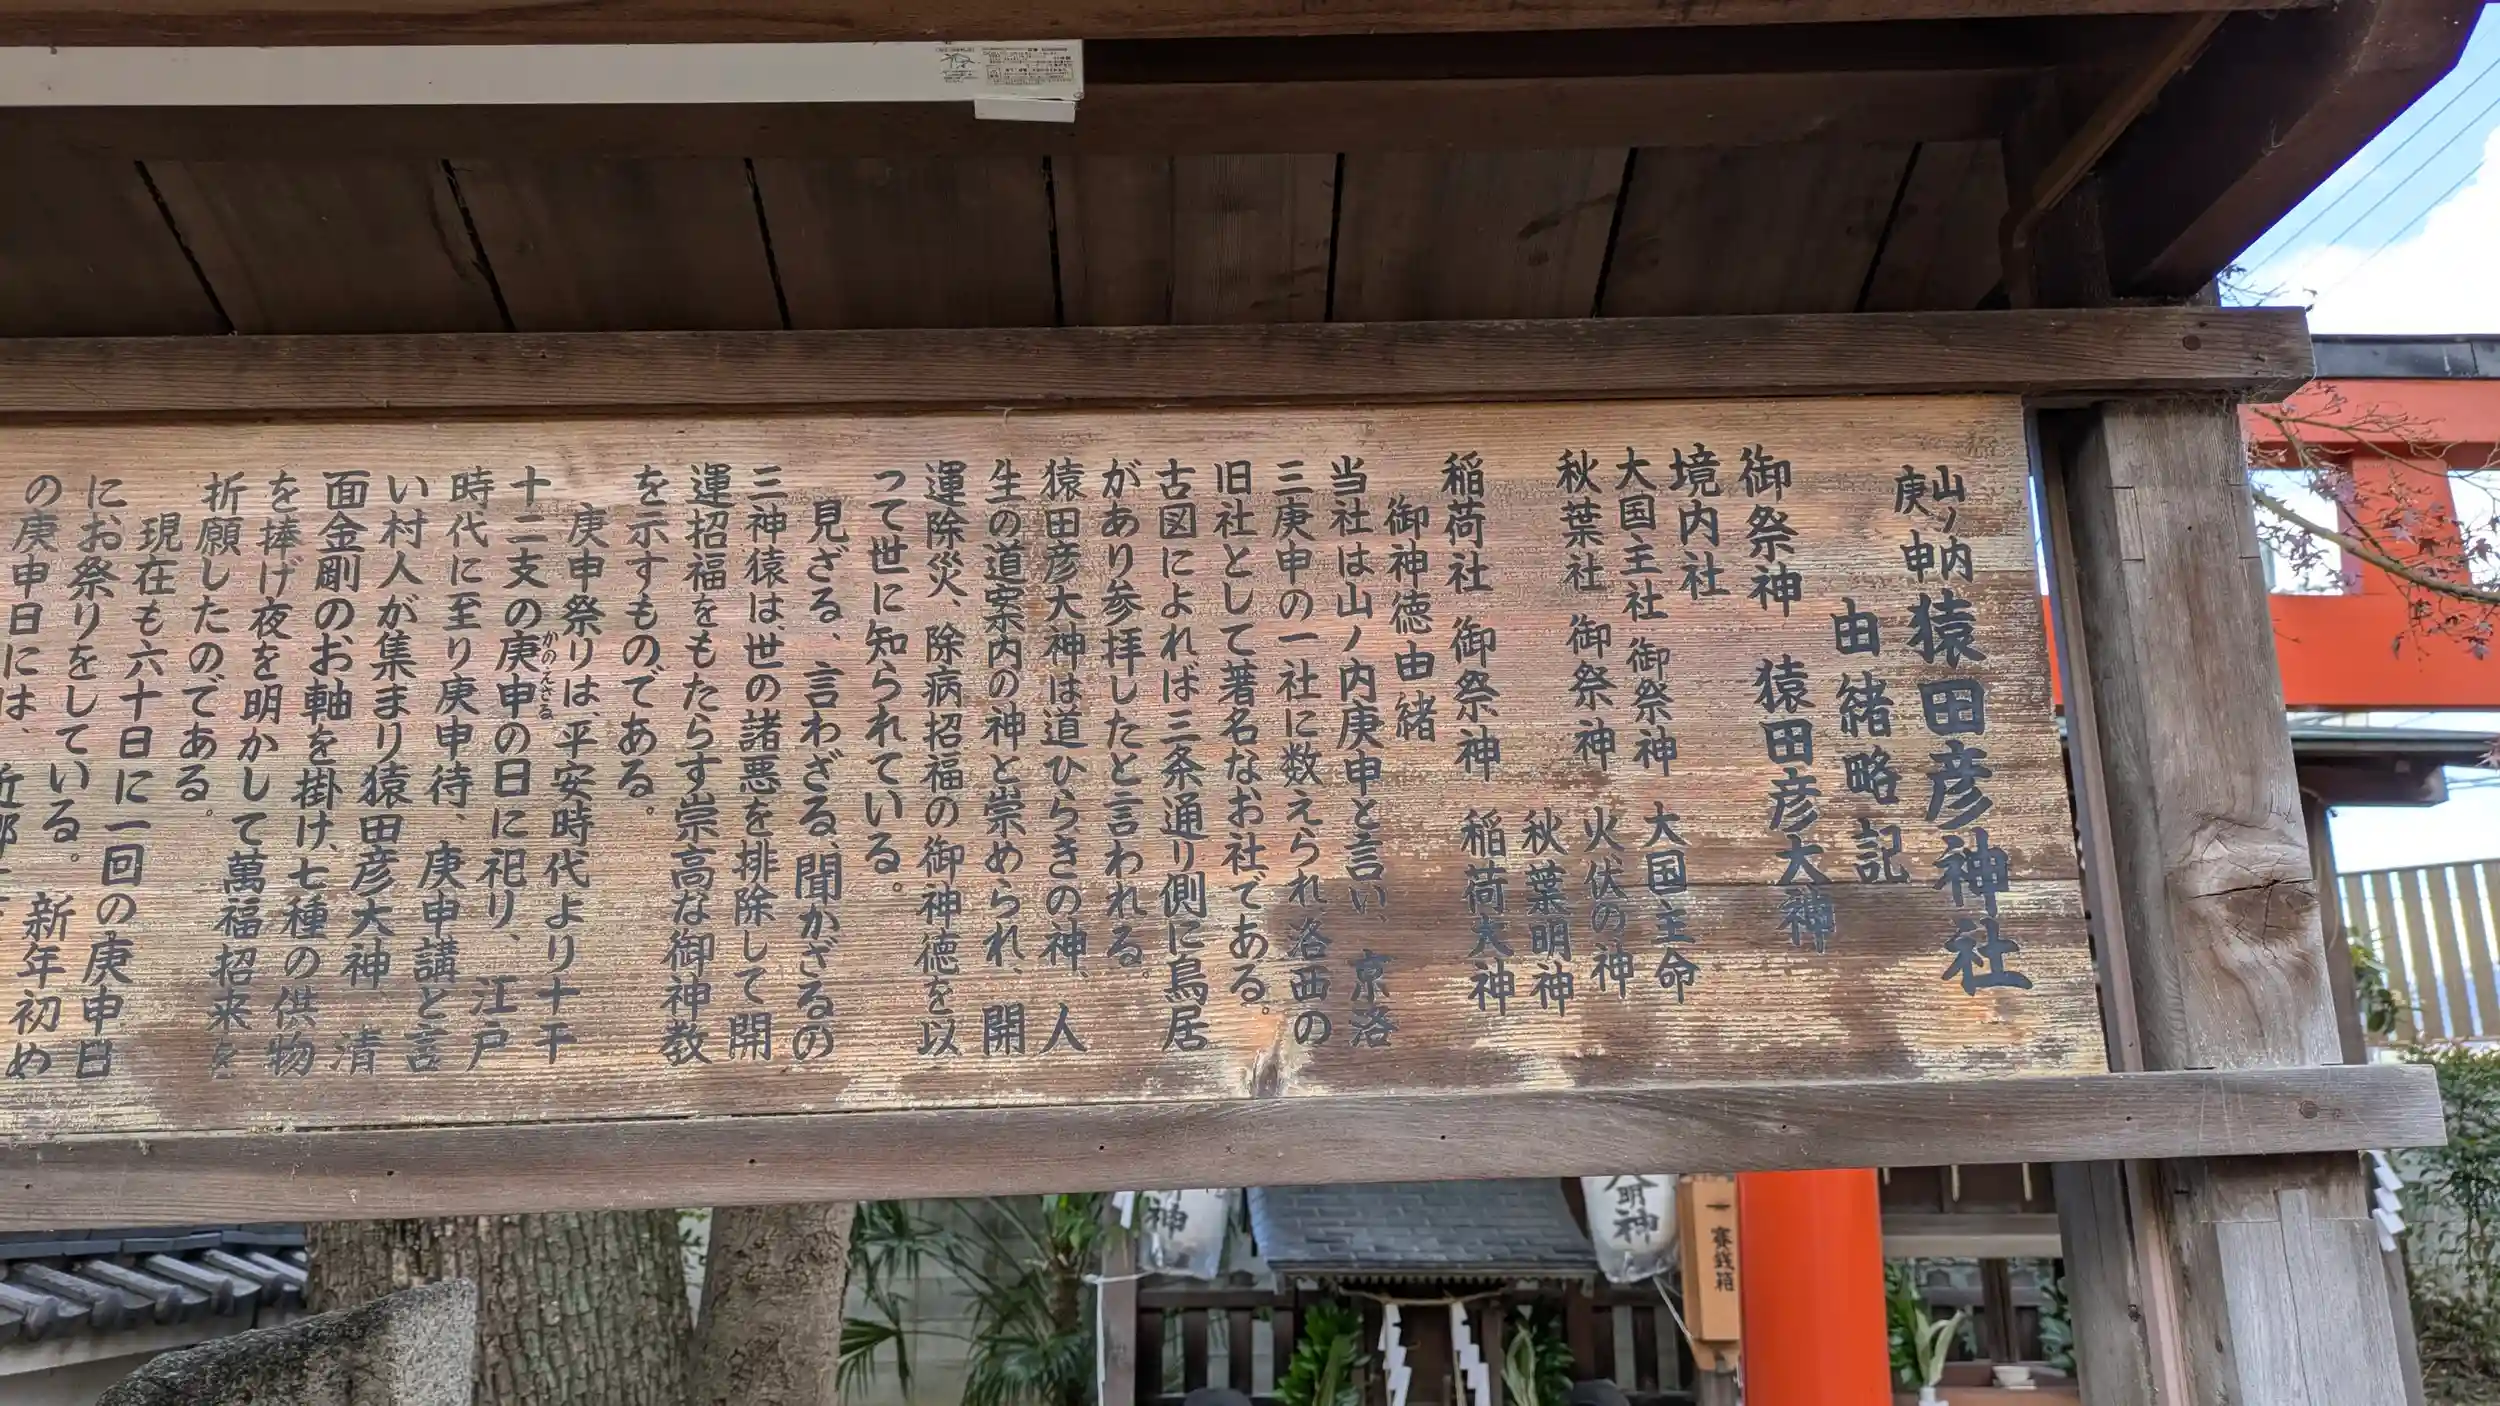 山ノ内
庚申
猿田彦神社
由緒略記
御祭神　猿田彦大神
境内社
大国主社　御祭神　大国主命
秋葉社　御祭神　火伏の神
秋葉明神
稲荷社　御祭神　稲荷大神
御神徳由緒
当社は山ノ内庚申と言い、京洛
三庚申の一社に数えられ洛西の
旧社として著名なお社である。
古図によれば三条通り側に鳥居
があり参拝したと言われる。
猿田彦大神は道ひらきの神、人
生の道案内の神と崇められ、開
運除災、除病招福の御神徳を以
って世に知られている。
見ざる、言わざる、聞かざるの
三神猿は、世の諸悪を排除して開
運招福をもたらす崇高な御神教
を示すものである。
庚申祭りは、平安時代より十干
十二支の庚申の日に祀り、江戸
かのえさる
時代に至り庚申待、庚申講と言
い村人が集まり猿田彦大神、清
面金剛のお軸を掛け、七種の供物
を捧げ夜を明かして萬福招来を
祈願したのである。
現在も六十日に一回の庚申日
にお祭りをしている。新年初め
の庚申日には、
神
明神
賽銭箱